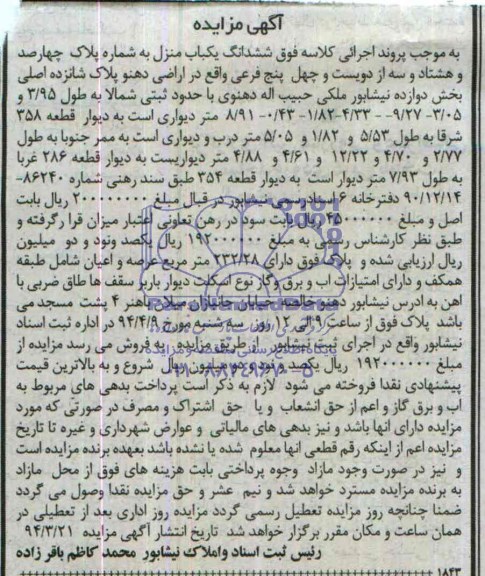 آگهی مزایده
به موجب پروند اجرائی کلاسه فوق ششدانگ یکباب منزل به شماره پلاک چهارصد
و هشتاد و سه از دویست و چهل پنج فرعی واقع در اراضی دهنو پلاک شانزده اصلی
بخش دوازده نیشابور ملکی حبیب اله دهنوی با حدود ثبتی شمالا به طول ۳/۹۵ و
۳/۰۵- ۹/۲۷-- ۴/۳۳-۱/۸۲- ۰/۴۳- ۸/۹۱ متر دیواری است به دیوار قطعه ۳۵۸
شرقا به طول ۵/۵۳ و ۱/۸۲ و ۵/۰۵ متر درب و دیواری است به ممر جنوبا به طول
۲/۷۷ و ۴/۷۰ و ۱۲/۲۲ و ۴/۶۱ و ۴/۸۸ متر دیواریست به دیوار قطعه ۲۸۶ غربا
به طول ۷/۹۳ متر دیوار است به دیوار قطعه ۳۵۴ طبق سند رهنی شماره ۸۶۲۴۰-
۹۰/۱۲/۱۴ دفترخانه ۶ اسناد رسمی نیشابور در قبال مبلغ ۲۰۰۰۰۰۰۰۰ ریال بابت
اصل و مبلغ ۴۵۰۰۰۰۰۰ ریال بابت سود در رهن تعاونی اعتبار میزان قرا رگرفته و
طبق نظر کارشناس رسمی به مبلغ ۱۹۲۰۰۰۰۰۰ ریال یکصد ونود و دو میلیون
ریال ارزیابی شده و پلاک فوق دارای ۲۳۲/۲۸ متر مربع عرصه و اعیان شامل طبقه
همکف و دارای امتیازات اب و برق و گاز نوع اسکلت دیوار باربر سقف ها طاق ضربی با
اهن به ادرس نیشابور دهنو خالصه خیابان جانبازان میلان باهنر ۴ پشت مسجد می
باشد پلاک فوق از ساعت ۹ الی ۱۲ روز سه شنبه مورخ ۹۴/۴/۹ در اداره ثبت اسناد
نیشابور واقع در اجرای ثبت نیشابور از طریق مزایده به فروش می رسد مزایده از
مبلغ ۱۹۲۰۰۰۰۰۰ ریال یکصد و نود و دو میلیون ریال شروع و به بالاترین قیمت
پیشنهادی نقدا فروخته می شود لازم به ذکر است پرداخت بدهی های مربوط به
اب و برق گاز و اعم از حق انشعاب و یا حق اشتراک و مصرف در صورتی که مورد
مزایده دارای انها باشد و نیز بدهی های مالیاتی و عوارض شهرداری و غیره تا تاریخ
مزایده اعم از اینکه رقم قطعی انها معلوم شده یا نشده باشد بعهده برنده مزایده است
و نیز در صورت وجود مازاد وجوه پرداختی بابت هزینه های فوق از محل مازاد
به برنده مزایده مسترد خواهد شد و نیم عشر و حق مزایده نقدا وصول می گردد
ضمنا چنانچه روز مزایده تعطیل رسمی گردد مزایده روز اداری بعد از تعطیلی در
همان ساعت و مکان مقرر برگزار خواهد شد تاریخ انتشار آگهی مزایده ۹۴/۳/۲۱
رئیس ثبت اسناد واملاک نیشابور محمد کاظم باقر زاده
۱۸۴۳